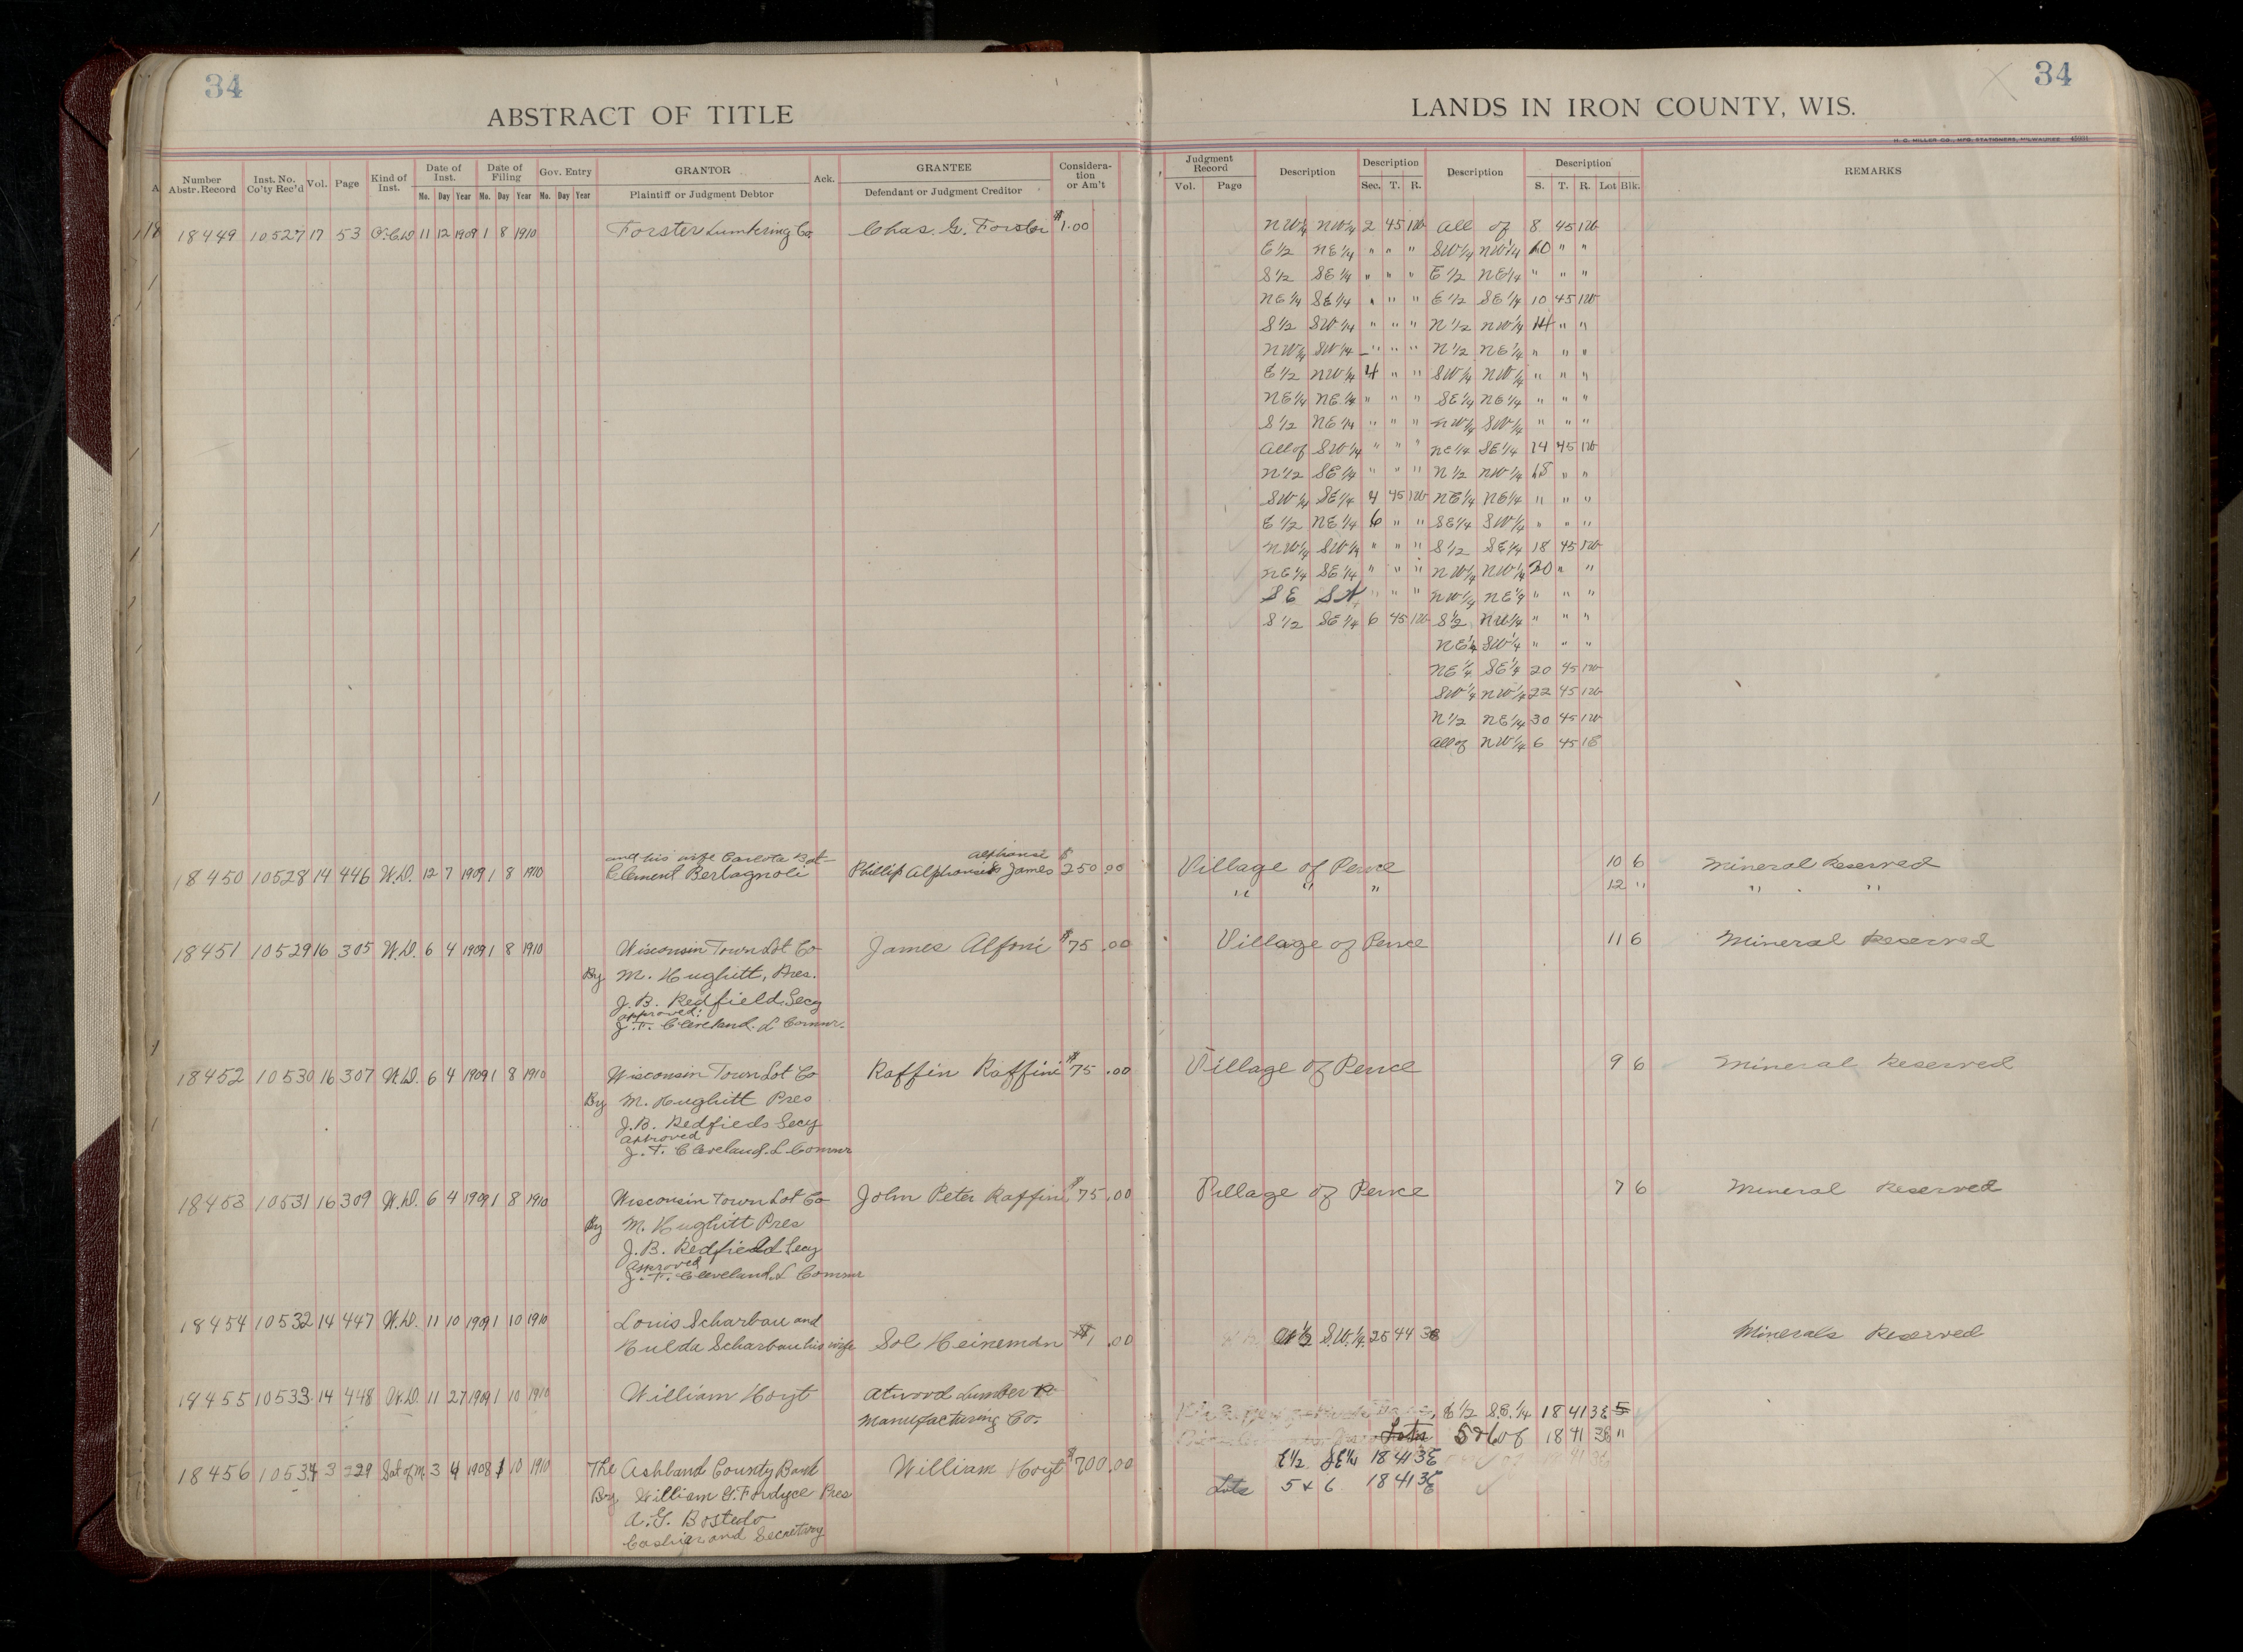 34
ABSTRACT OF TITLE
Number Abstr. Record | Inst. No. Co'ty Rec'd | Vol. | Page | Kind of Inst. | Date of Inst. Mo. Day Year | Date of Filing Mo. Day Year | Gov. Entry Mo. Day Year | GRANTOR Plaintiff or Judgment Debtor | Ack. | GRANTEE Defendant or Judgment Creditor | Considera-tion or Am't
18449 10527 17 53 Q.C.D 11 12 1909 1 8 1910 Forster Lumbering Co. Chas. G. Forster $1.00
and his wife Carlota Bat- Alphonse
18450 10528 14 446 W.D. 12 7 1909 1 8 1910 Clement Bertagnoli Phillip Alphonse James $250.00
18451 10529 16 305 W.D. 6 4 1909 1 8 1910 Wisconsin Town Lot Co James Alfoni $75.00
By M. Hughitt, Pres.
J. B. Redfield, Secy
approved:
J. F. Cleveland. L Commr.
18452 10530 16 307 W.D. 6 4 1909 1 8 1910 Wisconsin Town Lot Co Raffin Raffini $75.00
By M. Hughitt Pres
J. B. Redfields Secy
approved
J. F. Cleveland. L Commr
18453 10531 16 309 W.D. 6 4 1909 1 8 1910 Wisconsin Town Lot Co John Peter Raffini $75.00
By M. Hughitt Pres
J. B. Redfield Secy
approved
J. F. Cleveland. L Commr
18454 10532 14 447 W.D. 11 10 1909 1 10 1910 Louis Scharbau and
Hulda Scharbau his wife Sol Heineman $1.00
18455 10533 14 448 W.D. 11 27 1909 1 10 1910 William Hoyt Atwood Lumber &
Manufacturing Co.
18456 10534 3 229 Sat of M. 3 4 1908 1 10 1910 The Ashland County Bank William Hoyt $700.00
By William G. Fordyce Pres
A. G. Bostedo
Cashier and Secretary
34
LANDS IN IRON COUNTY, WIS.
H. G. MILLER CO., MFG. STATIONERS, MILWAUKEE
Judgment Record Vol. Page | Description | Description Sec. T. R. | Description | Description S. T. R. Lot Blk. | REMARKS
NW1/4 NW1/4 2 45 1W All of 8 45 1W
E1/2 NE1/4 " " " SW1/4 NW1/4 10 " "
S1/2 SE1/4 " " " E1/2 NE1/4 " " "
NE1/4 SE1/4 " " " E1/2 SE1/4 10 45 1W
S1/2 SW1/4 " " " N1/2 NW1/4 14 " "
NW1/4 SW1/4 " " " N1/2 NE1/4 " " "
E1/2 NW1/4 4 " " SW1/4 NW1/4 " " "
NE1/4 NE1/4 " " " SE1/4 NE1/4 " " "
S1/2 NE1/4 " " " NW1/4 SW1/4 " " "
All of SW1/4 " " " NE1/4 SE1/4 14 45 1W
N1/2 SE1/4 " " " N1/2 NW1/4 18 " "
SW1/4 SE1/4 4 45 1W NE1/4 NE1/4 " " "
E1/2 NE1/4 6 " " SE1/4 SW1/4 " " "
NW1/4 SW1/4 " " " S1/2 SE1/4 18 45 1W
NE1/4 SE1/4 " " " NW1/4 NW1/4 20 " "
SE " " " NW1/4 NE1/4 " " "
S1/2 SE1/4 6 45 1W S1/2 NW1/4 " " "
NE1/4 SW1/4 " " "
NE1/4 SE1/4 20 45 1W
SW1/4 NW1/4 22 45 1W
N1/2 NE1/4 30 45 1W
All of NW1/4 6 45 1E
Village of Pence 10 6 Mineral Reserved
" " " 12 " " "
Village of Pence 11 6 Mineral Reserved
Village of Pence 9 6 Mineral Reserved
Village of Pence 7 6 Mineral Reserved
1/2 S.W.1/4 25 44 3E Minerals Reserved
E1/2 S.E.1/4 18 41 3E
Lots 5 & 6 of 18 41 3E "
E1/2 SE1/4 18 41 3E
Lots 5 & 6 18 41 3E